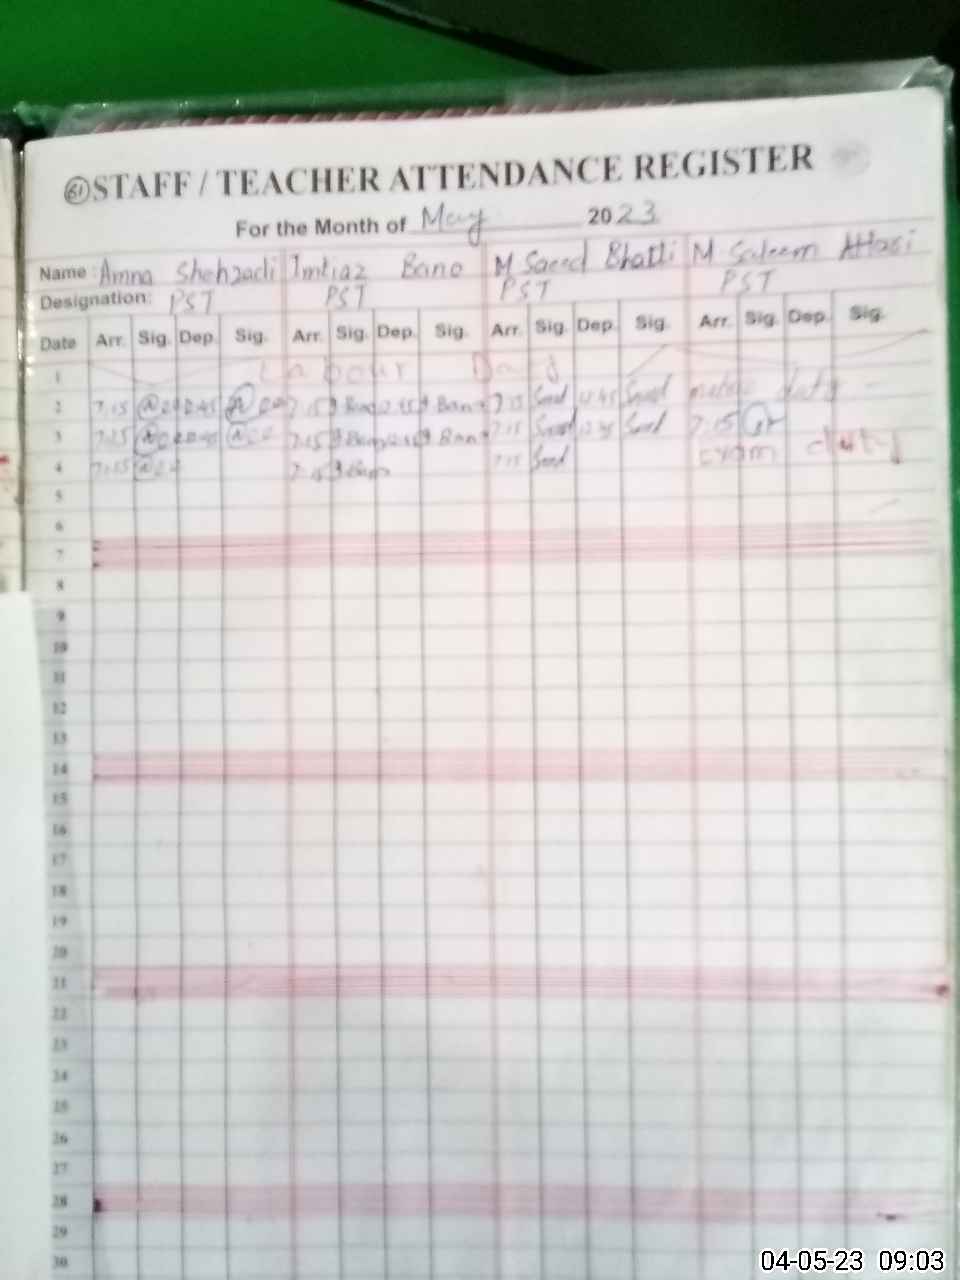 STAFF / TEACHER ATTENDANCE REGISTER
For the Month of May 2023
Name: Amna Shehzadi Imtiaz Bano M Saeed Bhatti M Saleem
Designation: PST PST PST PST
Date Arr. Sig. Dep. Sig. Arr. Sig. Dep. Sig. Arr. Sig. Dep. Sig. Arr. Sig. Dep. Sig.
1 Labour Day
2 7:15 7:15 Bano 7:15 Saeed 12:45 Saeed duty
3 7:15 7:15 Bano Bano 7:15 Saeed Saeed 7:15
4 7:15 7:15 Bano 7:15 Saeed exam duty
5
6
7
8
9
10
11
12
13
14
15
16
17
18
19
20
21
22
23
24
25
26
27
28
29
30
04-05-23 09:03